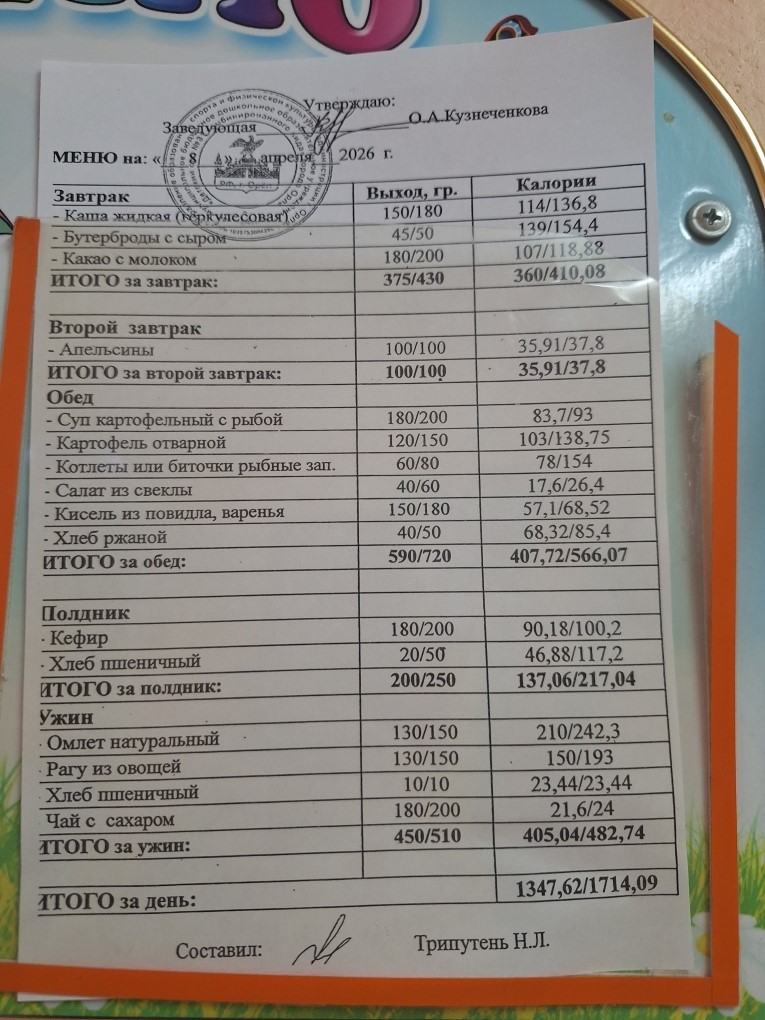 Утверждаю:
Заведующая О.А.Кузнеченкова
МЕНЮ на: « 8 » апреля 2026 г.
Завтрак Выход, гр. Калории
- Каша жидкая (геркулесовая) 150/180 114/136,8
- Бутерброды с сыром 45/50 139/154,4
- Какао с молоком 180/200 107/118,88
ИТОГО за завтрак: 375/430 360/410,08
Второй завтрак
- Апельсины 100/100 35,91/37,8
ИТОГО за второй завтрак: 100/100 35,91/37,8
Обед
- Суп картофельный с рыбой 180/200 83,7/93
- Картофель отварной 120/150 103/138,75
- Котлеты или биточки рыбные зап. 60/80 78/154
- Салат из свеклы 40/60 17,6/26,4
- Кисель из повидла, варенья 150/180 57,1/68,52
- Хлеб ржаной 40/50 68,32/85,4
ИТОГО за обед: 590/720 407,72/566,07
Полдник
- Кефир 180/200 90,18/100,2
- Хлеб пшеничный 20/50 46,88/117,2
ИТОГО за полдник: 200/250 137,06/217,04
Ужин
- Омлет натуральный 130/150 210/242,3
- Рагу из овощей 130/150 150/193
- Хлеб пшеничный 10/10 23,44/23,44
Чай с сахаром 180/200 21,6/24
ИТОГО за ужин: 450/510 405,04/482,74
ИТОГО за день: 1347,62/1714,09
Составил: Трипутень Н.Л.